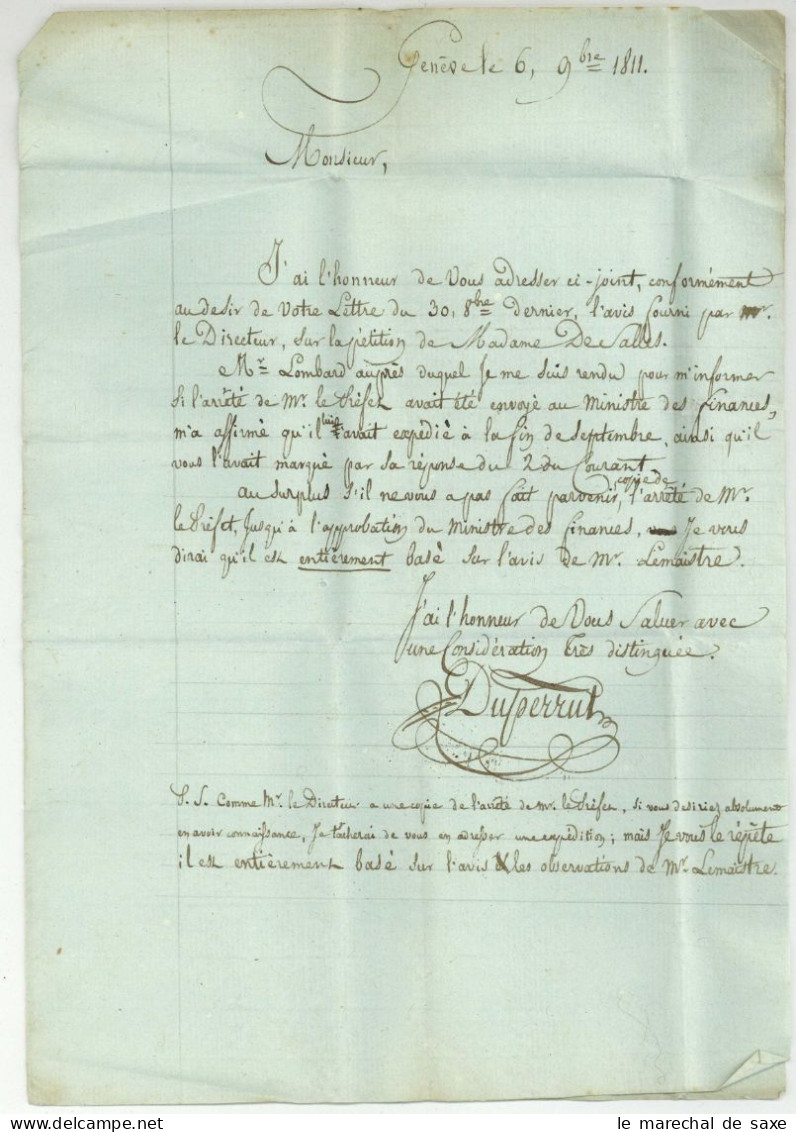 Genève le 6, 9bre 1811.
Monsieur,
J'ai l'honneur de Vous adresser ci-joint, conformément
au desir de Votre Lettre du 30, 8bre dernier, l'avis fourni par Mr.
le Directeur, sur la pétition de Madame De Salles.
Mr. Lombard auprès duquel Je me suis rendu pour m'informer
si l'arrêté de Mr. le Préfet avait été envoyé au Ministre des finances,
m'a affirmé qu'il lui avait expédié à la fin de septembre, ainsi qu'il
vous l'avait marqué par sa réponse du 2 du Courant.
au surplus s'il ne vous a pas fait parvenir, copie de l'arrêté de Mr.
le Préfet, Jusqu'à l'approbation du Ministre des finances, Je vous
dirai qu'il est entièrement basé sur l'avis de Mr. Lemaistre.
J'ai l'honneur de Vous Saluer avec
une Considération très distinguée.
Duperrut
P. S. Comme Mr. le Directeur a une copie de l'arrêté de Mr. le Préfet, si vous desiriez absolument
en avoir connaissance, Je tâcherai de vous en adresser une expédition; mais Je vous le répète
il est entièrement basé sur l'avis & les observations de Mr. Lemaistre.
le marechal de saxe